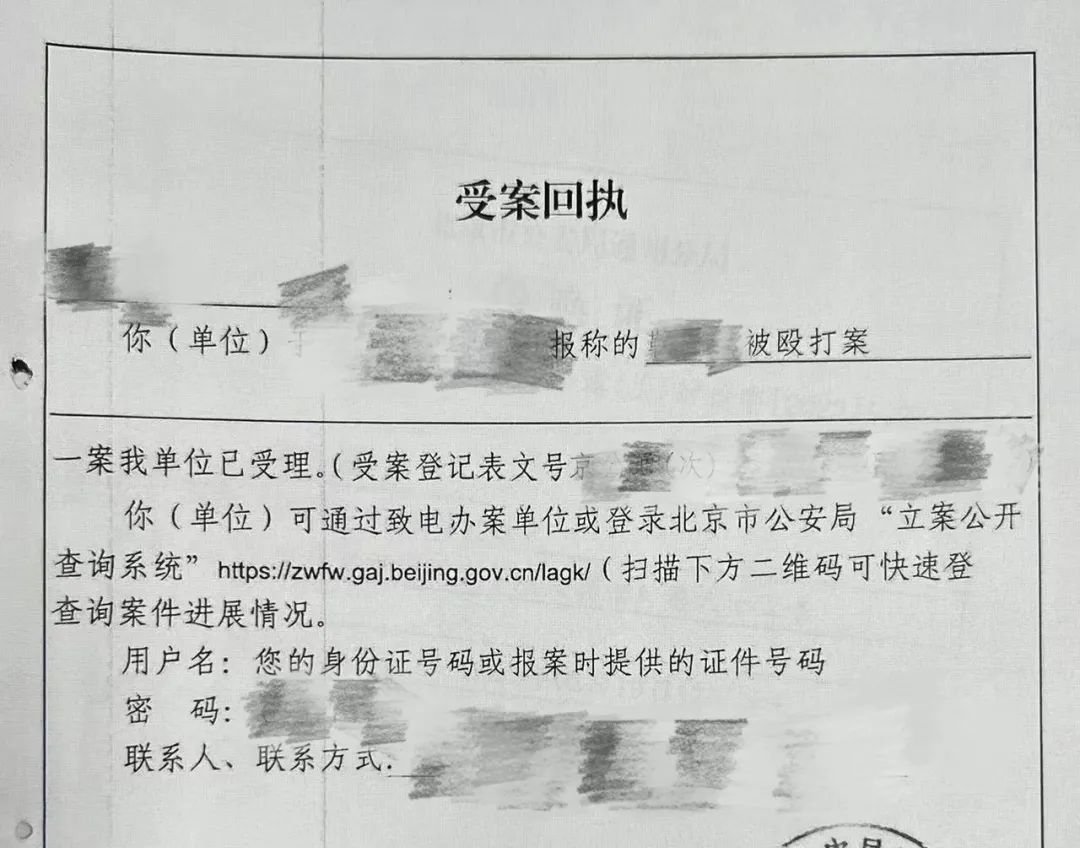 受案回执
你（单位） 报称的 被殴打案
一案我单位已受理。（受案登记表文号京 （次）
你（单位）可通过致电办案单位或登录北京市公安局“立案公开
查询系统”https://zwfw.gaj.beijing.gov.cn/lagk/（扫描下方二维码可快速登
查询案件进展情况。
用户名：您的身份证号码或报案时提供的证件号码
密 码：
联系人、联系方式